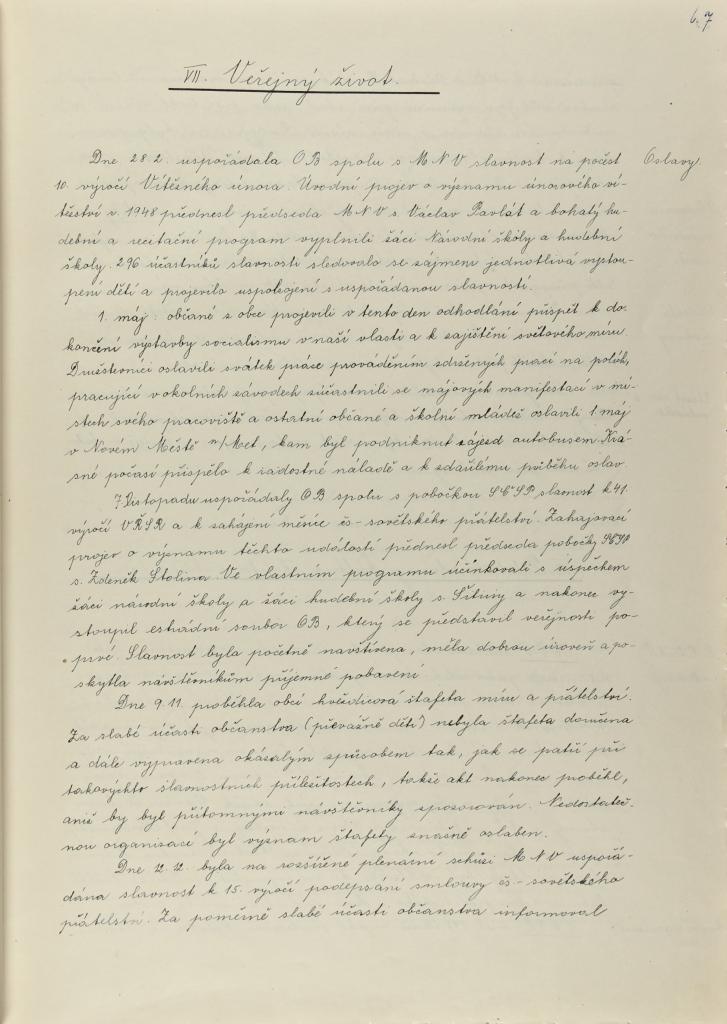 67
VII. Veřejný život.
Dne 28.2. uspořádala OB spolu s MNV slavnost na počest
Oslavy.
10. výročí Vítězného února. Úvodní projev o významu únorového ví-
tězství r. 1948 přednesl předseda MNV s. Václav Pavlát a bohatý hu-
dební a recitační program vyplnili žáci Národní školy a hudební
školy. 296 účastníků slavnosti sledovalo se zájmem jednotlivá vystou-
pení dětí a projevilo uspokojení s uspořádanou slavností.
1. máj: občané z obce projevili v tento den odhodlání přispět k do-
končení výstavby socialismu v naší vlasti a k zajištění světového míru.
Družstevníci oslavili svátek práce prováděním zdržených prací na polích,
pracující v okolních závodech zúčastnili se májových manifestací v mí-
stech svého pracoviště a ostatní občané a školní mládež oslavili 1. máj
v Novém Městě n/Met, kam byl podniknut zájezd autobusem. Krá-
sné počasí přispělo k radostné náladě a k zdařilému průběhu oslav.
7. listopadu uspořádaly OB spolu s pobočkou SČSP slavnost k 41.
výročí VŘSR a k zahájení měsíce čs-sovětského přátelství. Zahajovací
projev o významu těchto událostí přednesl předseda pobočky SČSP
s. Zdeněk Stolina. Ve vlastním programu účinkovali s úspěchem
žáci národní školy a žáci hudební školy s. Šitury a nakonec vy-
stoupil estrádní soubor OB, který se představil veřejnosti po-
prvé. Slavnost byla početně navštívena, měla dobrou úroveň a po-
skytla návštěvníkům příjemné pobavení
Dne 9.11. proběhla obcí hvězdicová štafeta míru a přátelství.
Za slabé účasti občanstva (převážně dětí) nebyla štafeta doručena
a dále vypravena okázalým způsobem tak, jak se patří při
takovýchto slavnostních příležitostech, takže akt nakonec proběhl,
aniž by byl přítomnými návštěvníky zpozorován. Nedostateč-
nou organisací byl význam štafety značně oslaben.
Dne 12.12. byla na rozšířené plenární schůzi MNV uspořá-
dána slavnost k 15. výročí podepsání smlouvy čs-sovětského
přátelství. Za poměrně slabé účasti občanstva informoval